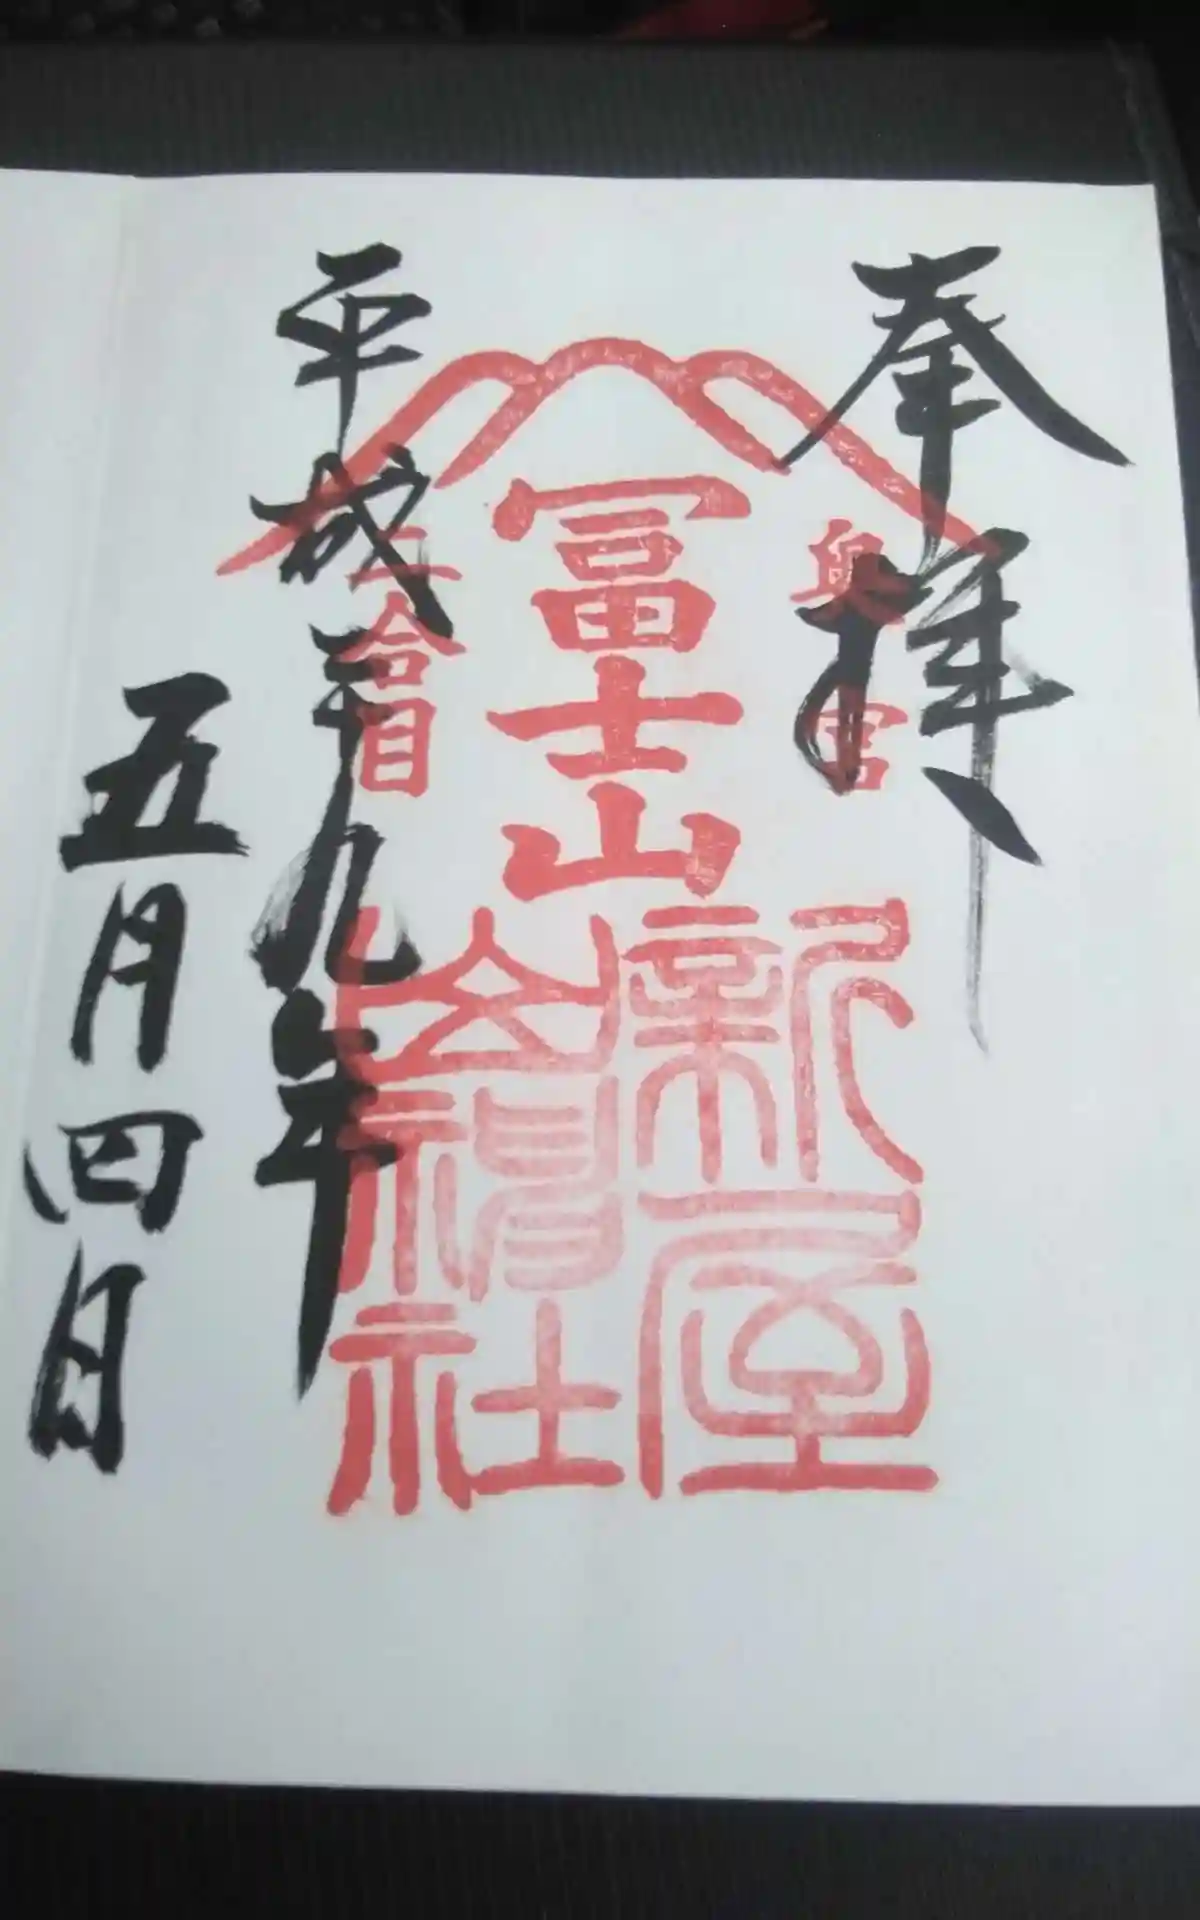 奉拝
奥宮
冨士山
二合目
新屋
山神社
平成二十九年
五月四日